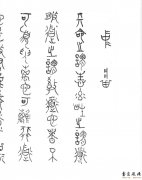 中庸
天命之謂性率性之謂道
脩道之謂教道也者不
可須臾離也可離非道